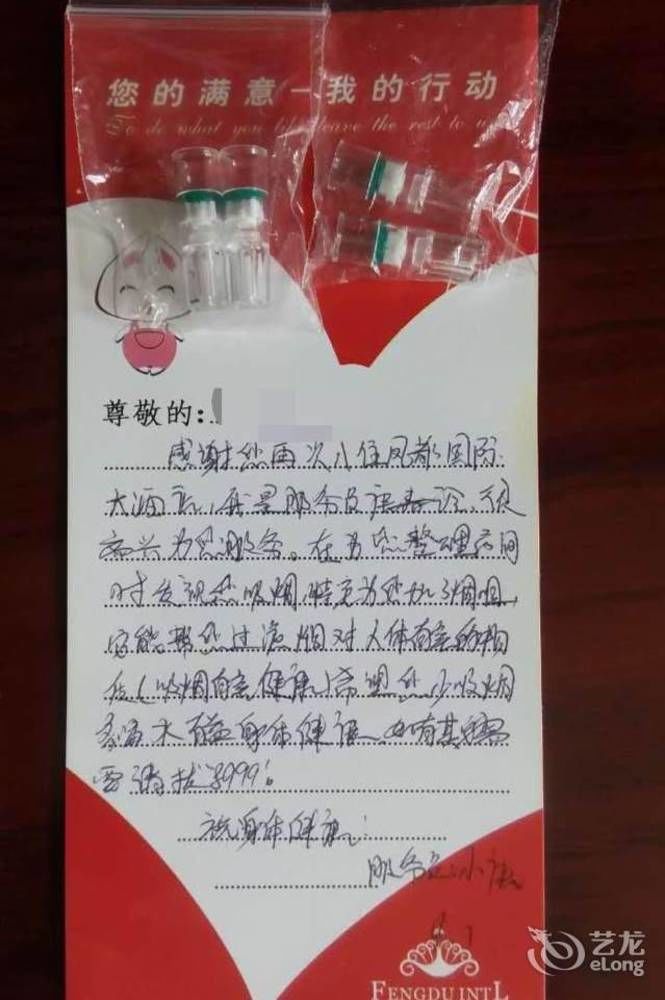 您的满意—我的行动
To do what you like leave the rest to us
尊敬的:
感谢您再次入住凤都国际
大酒店,我是服务员唐春玲,很
高兴为您服务。在为您整理房间
时发现您吸烟,特意为您加了烟咀,
它能帮您过滤烟对人体有害的物
质(吸烟有害健康)希望您少吸烟
多喝水 有益身体健康,如有其它需
要请拔打999!
祝身体健康!
服务员:小唐
FENGDU INT'L
艺龙
eLong